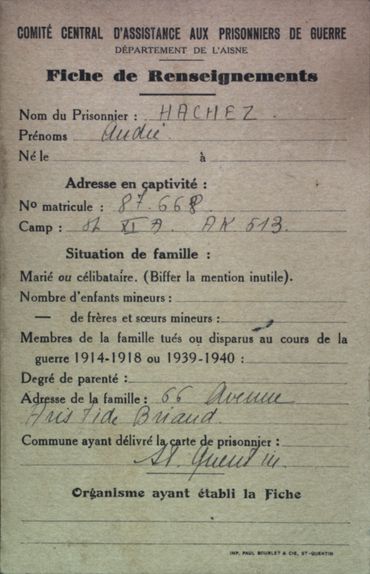 COMITÉ CENTRAL D'ASSISTANCE AUX PRISONNIERS DE GUERRE
DÉPARTEMENT DE L'AISNE
Fiche de Renseignements
Nom du Prisonnier : HACHEZ.
Prénoms André.
Né le à
Adresse en captivité :
No matricule : 87.668
Camp : St XI A. AK 513
Situation de famille :
Marié ou célibataire. (Biffer la mention inutile).
Nombre d'enfants mineurs :
— de frères et sœurs mineurs :
Membres de la famille tués ou disparus au cours de la
guerre 1914-1918 ou 1939-1940 :
Degré de parenté :
Adresse de la famille : 66 Avenue
Aristide Briand.
Commune ayant délivré la carte de prisonnier :
St. Quentin.
Organisme ayant établi la Fiche
IMP. PAUL BOURLET & CIE, ST-QUENTIN